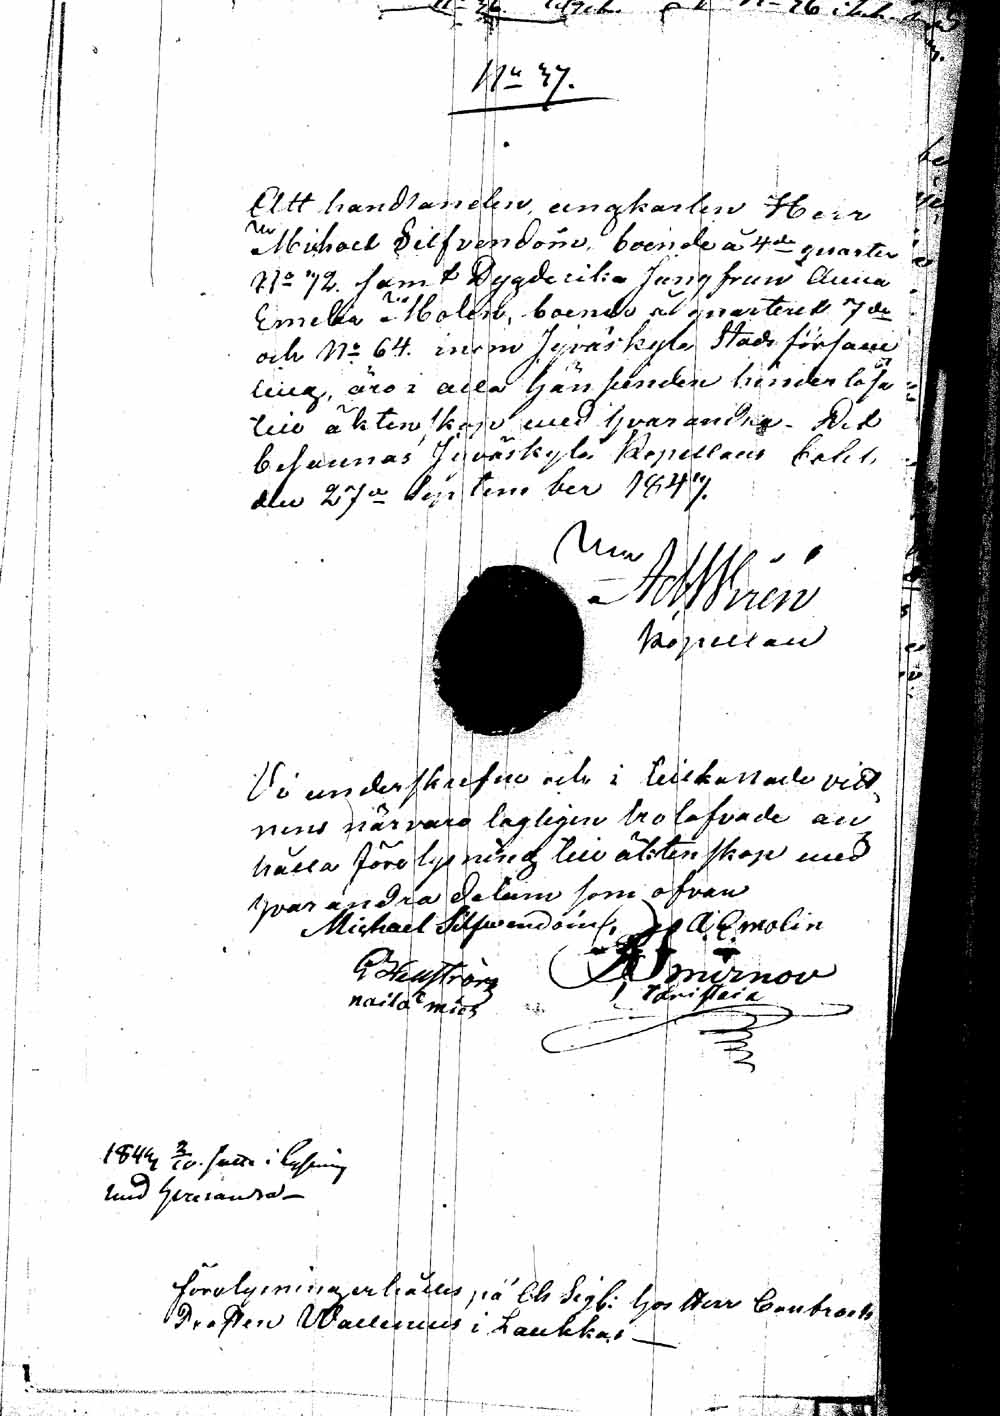 No 37.
Att handlanden, ungkarlen Herr
Michael Silfvendoin, boende å 4de quarter
No 72. samt Dygderika Jungfrun Anna
Emelia Molin, boende å quarteret 7de
och No 64. inom Jyväskylä Stads försam
ling, äro i alla hänseenden hinderlösa
till äktenskap med hvarandra. Det
befunnas Jyväskylä Kapellans
den 27de September 1847.
Ad Wirén
Kapellan
Vi underskrefne och i tillkallade vitt
nens närvaro lagligen trolofvade an
hålla förelysning till äktenskap med
hvarandra datum som ofvan
Michael Silfvendoin A. E. Molin
Smirnov
1847 3/10 i lysning
med hvarandra
förelysning erhålles på Ch Sigb: hos Herr Contracts
Prosten Wallenius i Laukkas